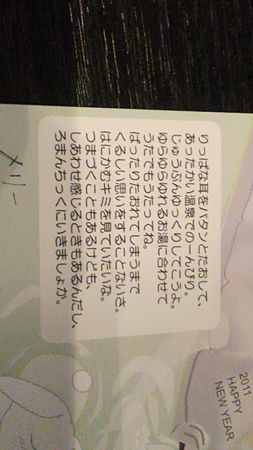 りっぱな耳をパタンとたおして、
あったかい温泉でのーんびり。
じゅうぶんゆっくりしてこうよ。
ゆらゆらゆれるお湯に合わせて
うたでもうたってね。
ばったりたおれてしまうまで
くるしい思いをすることないさ。
はにかむキミを見ていたいな。
つまづくこともあるけども、
しあわせ感じるときもあるんだし、
ろまんちっくにいきましょか。
メリー
2011
HAPPY
NEW YEAR